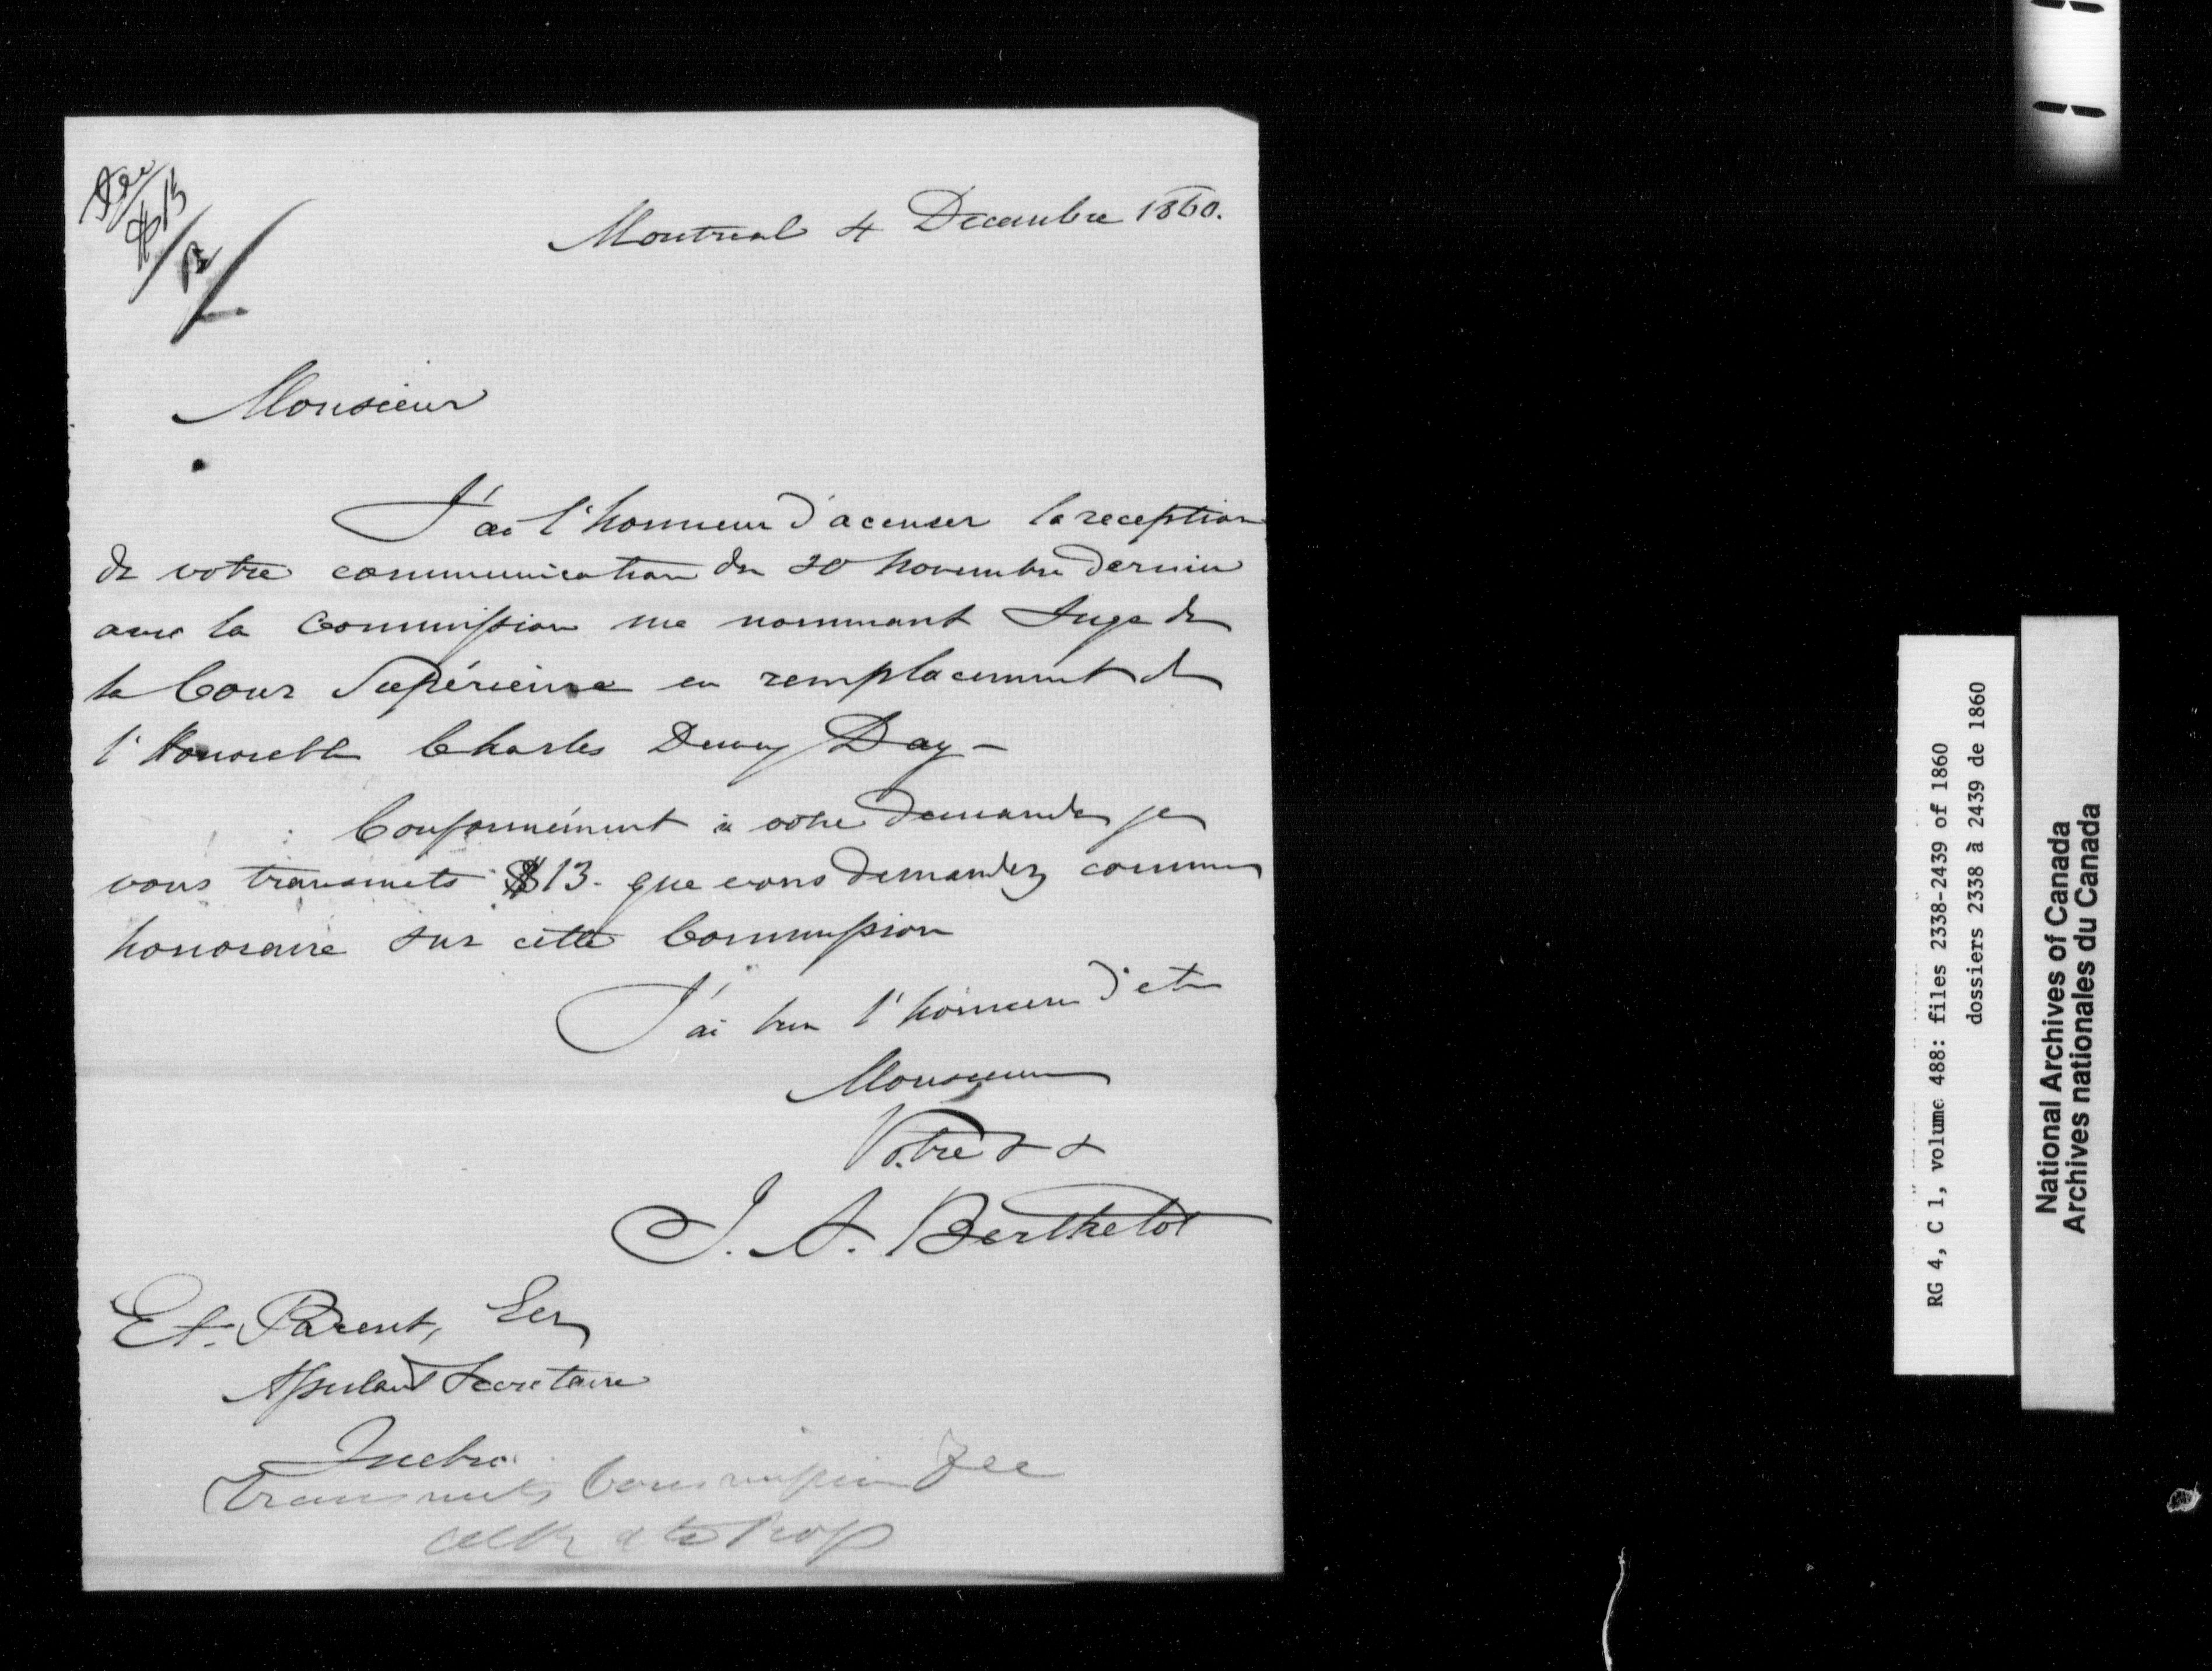 $13
Montreal 4 Decembre 1860.
Monsieur
J'ai l'honneur d'accuser la reception
de votre communication du 30 Novembre dernier
avec la Commission me nommant Juge de
la Cour Supérieure en remplacement de
l'Honorable Charles Dewey Day –
Conformément à votre demande je
vous transmets $13- que vous demandez comme
honoraire sur cette Commission
J'ai bien l'honneur d'etre
Monsieur
Votre &c &c
J. A. Berthelot
Et. Parent, Ecr
Assistant Secretaire
Quebec
Transmits Commission Fee
RG 4, C 1, volume 488: files 2338-2439 of 1860
dossiers 2338 à 2439 de 1860
National Archives of Canada
Archives nationales du Canada